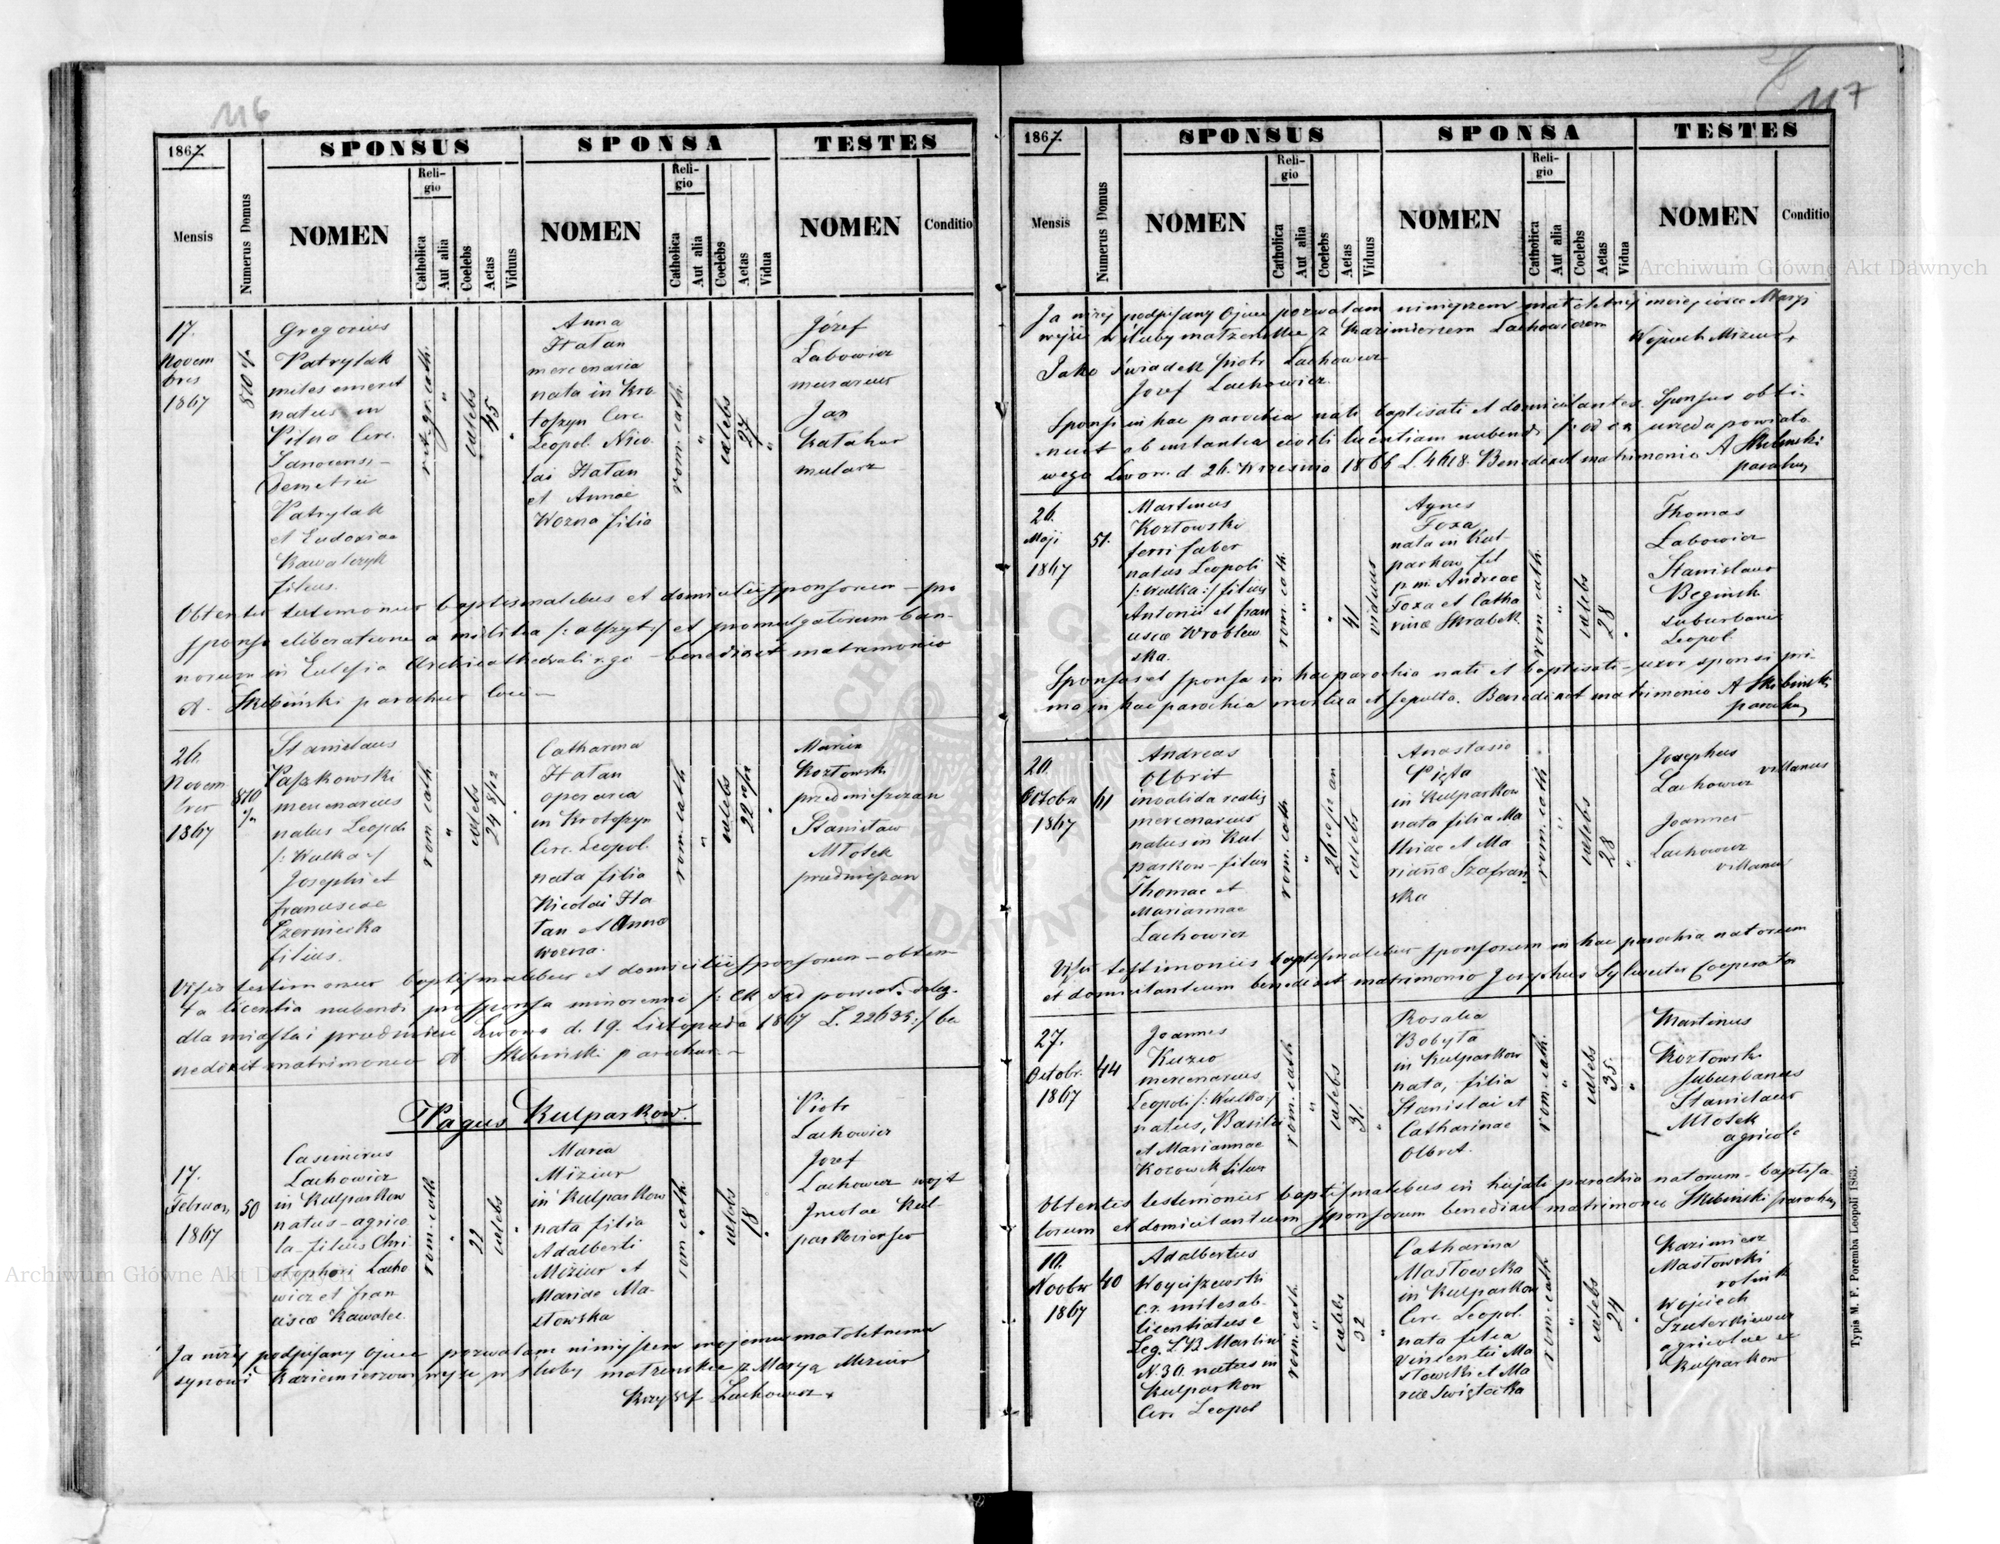 116
1867
SPONSUS
SPONSA
TESTES
Mensis
Numerus Domus
NOMEN
Religio
Catholica
Aut alia
Coelebs
Aetas
Viduus
NOMEN
Religio
Catholica
Aut alia
Coelebs
Aetas
Vidua
NOMEN
Conditio
17.
Novem
bris
1867
Gregorius
Patrylak
miles emerit
natus in
Demetrii
Patrylak
et Eudoxiae
Kawalczyk
filius.
rit. gr. cath.
caelebs
45
Anna
Hatan
mercenaria
nata in Kro
toszyn Circ.
Leopol. Nico
lai Hatan
et Annae
Wozna filia
rom. cath.
caelebs
27
Józef
Labowicz
murarz
Jan
mularz
Obtentis testimoniis baptismalibus et domicilii sponsorum - pro
sponso eliberatione a militia /: abszyt :/ et promulgatorum ban-
norum in Eclesia Archicathedrali r. gr. - benedixit matrimonio
A. Skibiński parochus loci -
26.
Novem
bris
1867
810
Stanislaus
Paszkowski
mercenarius
natus Leopoli
/: Wulka :/
Josephi et
Franciscae
Czerniecka
filius.
rom. cath
caelebs
24 8/12
Catharina
Hatan
operaria
in Krotoszyn
Circ. Leopol.
nata filia
Nicolai Ha
tan et Annae
Wozna.
rom. cath
caelebs
Marcin
Kozłowski
przedmieszczan
Stanisław
Młotek
przedmieszczan
Visis testimoniis baptismalibus et domicilii sponsorum - obten
ta licentia nubendi pro sponsa minorenni /: CK Sąd powiat. deleg.
dla miasta i przedmieść Lwowa d. 19. Listopada 1867 L. 22635 :/ be
nedixit matrimonio A. Skibiński parochus -
Pagus Kulparkow.
17.
Februar,
1867
50
Casimirus
Lachowicz
in Kulparkow
natus - agrico
la - filius Chri
stophori Lacho
wicz et Fran
ciscae Kawalec
rom. cath
22
caelebs
Maria
Miziur
in Kulparkow
nata filia
Adalberti
Miziur et
Mariae Ma-
słowska
rom. cath.
caelebs
18
Piotr
Lachowicz
Jozef
Lachowicz wojt
Incolae Kul-
parkovienses
Ja niżej podpisany Ojciec pozwalam niniejszem mojemu małoletniemu
synowi Kazimierzowi wejść w śluby małżeńskie z Maryą Miziur
Krzysztof Lachowicz +
117
1867
SPONSUS
SPONSA
TESTES
Mensis
Numerus Domus
NOMEN
Religio
Catholica
Aut alia
Coelebs
Aetas
Viduus
NOMEN
Religio
Catholica
Aut alia
Coelebs
Aetas
Vidua
NOMEN
Conditio
Ja niżej podpisany Ojciec pozwalam niniejszem małoletniej mojej córce Maryi
wejść w śluby małżeńskie z Kazimierzem Lachowiczem
Wojciech Miziur +
Jako świadek Piotr Lachowicz
Jozef Lachowicz.
Sponsi in hac parochia nati baptisati et domicilantes. Sponsus obti-
nuit ab instantia civili licentiam nubendi /: od c.k. urzędu powiato
wego Lwow. d. 26. Września 1866 L. 4618. Benedixit matrimonio A Skibinski
parochus
26.
Maji
1867
51.
Martinus
Kozłowski
ferri faber
natus Leopoli
/: Wulka :/ filius
Antonii et Fran
ciscae Wroblew
ska.
rom. cath
41
viduus
Agnes
Foxa
nata in Kul
parkow, fil
p.m. Andreae
Foxa et Catha
rinae Skrabek
rom. cath.
caelebs
28
Thomas
Labowicz
Stanislaus
suburbani
Leopol.
Sponsus et sponsa in hac parochia nati et baptisati - uxor sponsi pri-
ma in hac parochia mortua et sepulta. Benedixit matrimonio A Skibinski
parochus
20.
Octobr
1867
61
Andreas
Olbrit
invalida realis
mercenarius
natus in Kul
parkow - filius
Thomae et
Mariannae
Lachowicz
rom. cath.
caelebs
Anastasia
Pięta
in Kulparkow
nata filia Ma
thiae et Ma
riannae Szafran
ska
rom. cath
caelebs
28
Josephus
Lachowicz villanus
Joannes
Lachowicz
villanus
Visis testimoniis baptismalibus sponsorum in hac parochia natorum
et domicilantium benedixit matrimonio Josephus Sylwester Cooperator
27.
Octobr.
1867
44
Joannes
Kuzio
mercenarius
Leopoli /: Wulka :/
natus, Basilii
et Mariannae
filius
rom. cath
caelebs
31.
Rosalia
Bobyta
in Kulparkow
nata, filia
Stanislai et
Catharinae
Olbrit.
rom. cath.
caelebs
35.
Martinus
Kozłowski
suburbanus
Stanislaus
Młotek
agricola
Obtentis testimoniis baptismalibus in hujate parochia natorum - baptisa
torum et domicilantium sponsorum benedixit matrimonio Skibinski parochus
10.
Novbr
1867
40
Adalbertus
Woyciszewski
c.r. miles ab-
licentiatus e
N. 30. natus in
Kulparkow
Circ. Leopol
rom. cath.
caelebs
32
Catharina
Masłowska
in Kulparkow
Circ. Leopol.
nata filia
Vincentii Ma
słowski et Ma
riae Swiętocka
rom. cath
caelebs
24
Kazimierz
Masłowski
rolnik
Wojciech
agricolae ex
Kulparkow
Typis M. F. Poremba Leopoli 1863.
Archiwum Główne Akt Dawnych
Archiwum Główne Akt Dawnych